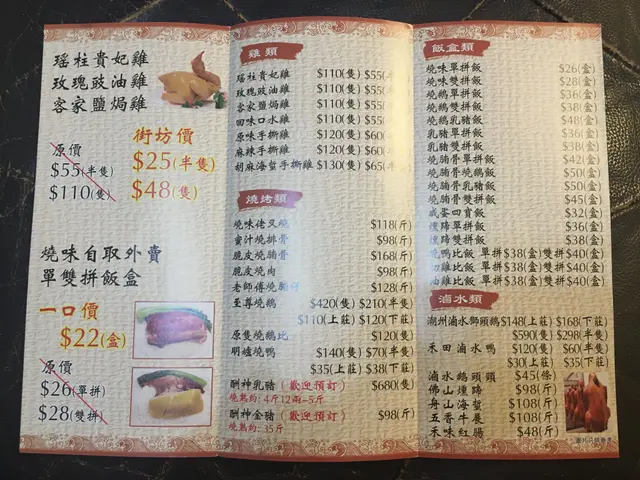 瑤柱貴妃雞
玫瑰豉油雞
客家鹽焗雞
街坊價
原價
$55(半隻)
$25(半隻)
$110(隻)
$48(隻)
燒味自取外賣
單雙拼飯盒
一口價
$22(盒)
原價
$26(單拼)
$28(雙拼)
雞類
瑤柱貴妃雞 $110(隻) $55(半
玫瑰豉油雞 $110(隻) $55(半
客家鹽焗雞 $110(隻) $55(半
回味口水雞 $110(隻) $55(半
原味手撕雞 $120(隻) $60(半
麻辣手撕雞 $120(隻) $60(半
胡麻海蜇手撕雞 $130(隻) $65(半
燒烤類
燒味佬叉燒 $118(斤)
蜜汁燒排骨 $98(斤)
脆皮燒腩骨 $168(斤)
脆皮燒肉 $98(斤)
老師傅燒腩仔 $128(斤)
至尊燒鵝 $420(隻) $210(半隻)
$110(上莊) $120(下莊)
原隻燒鵝比 $120(隻)
明爐燒鴨 $140(隻) $70(半隻)
$35(上莊) $38(下莊)
酬神乳豬(歡迎預訂) $680(隻)
燒熟約: 4斤12兩-5斤
酬神金豬(歡迎預訂) $98(斤)
燒熟約: 35斤
飯盒類
燒味單拼飯 $26(盒)
燒味雙拼飯 $28(盒)
燒鵝單拼飯 $36(盒)
燒鵝雙拼飯 $38(盒)
燒鵝乳豬飯 $48(盒)
乳豬單拼飯 $36(盒)
乳豬雙拼飯 $38(盒)
燒腩骨單拼飯 $42(盒)
燒腩骨燒鵝飯 $50(盒)
燒腩骨乳豬飯 $50(盒)
燒腩骨雙拼飯 $45(盒)
咸蛋四寶飯 $32(盒)
燻蹄單拼飯 $36(盒)
燻蹄雙拼飯 $38(盒)
燒鴨比飯 單拼$38(盒)雙拼$40(盒)
雞比飯 單拼$38(盒)雙拼$40(盒)
油雞比飯 單拼$38(盒)雙拼$40(盒)
滷水類
潮州滷水獅頭鵝 $148(上莊) $168(下莊)
$590(隻) $298(半隻)
禾田滷水鴨 $120(隻) $60(半隻)
$30(上莊) $35(下莊)
滷水鵝頭頸 $45(条)
佛山燻蹄 $98(斤)
舟山海蜇 $108(斤)
五香牛展 $108(斤)
禾味紅腸 $48(斤)
圖片只供參考